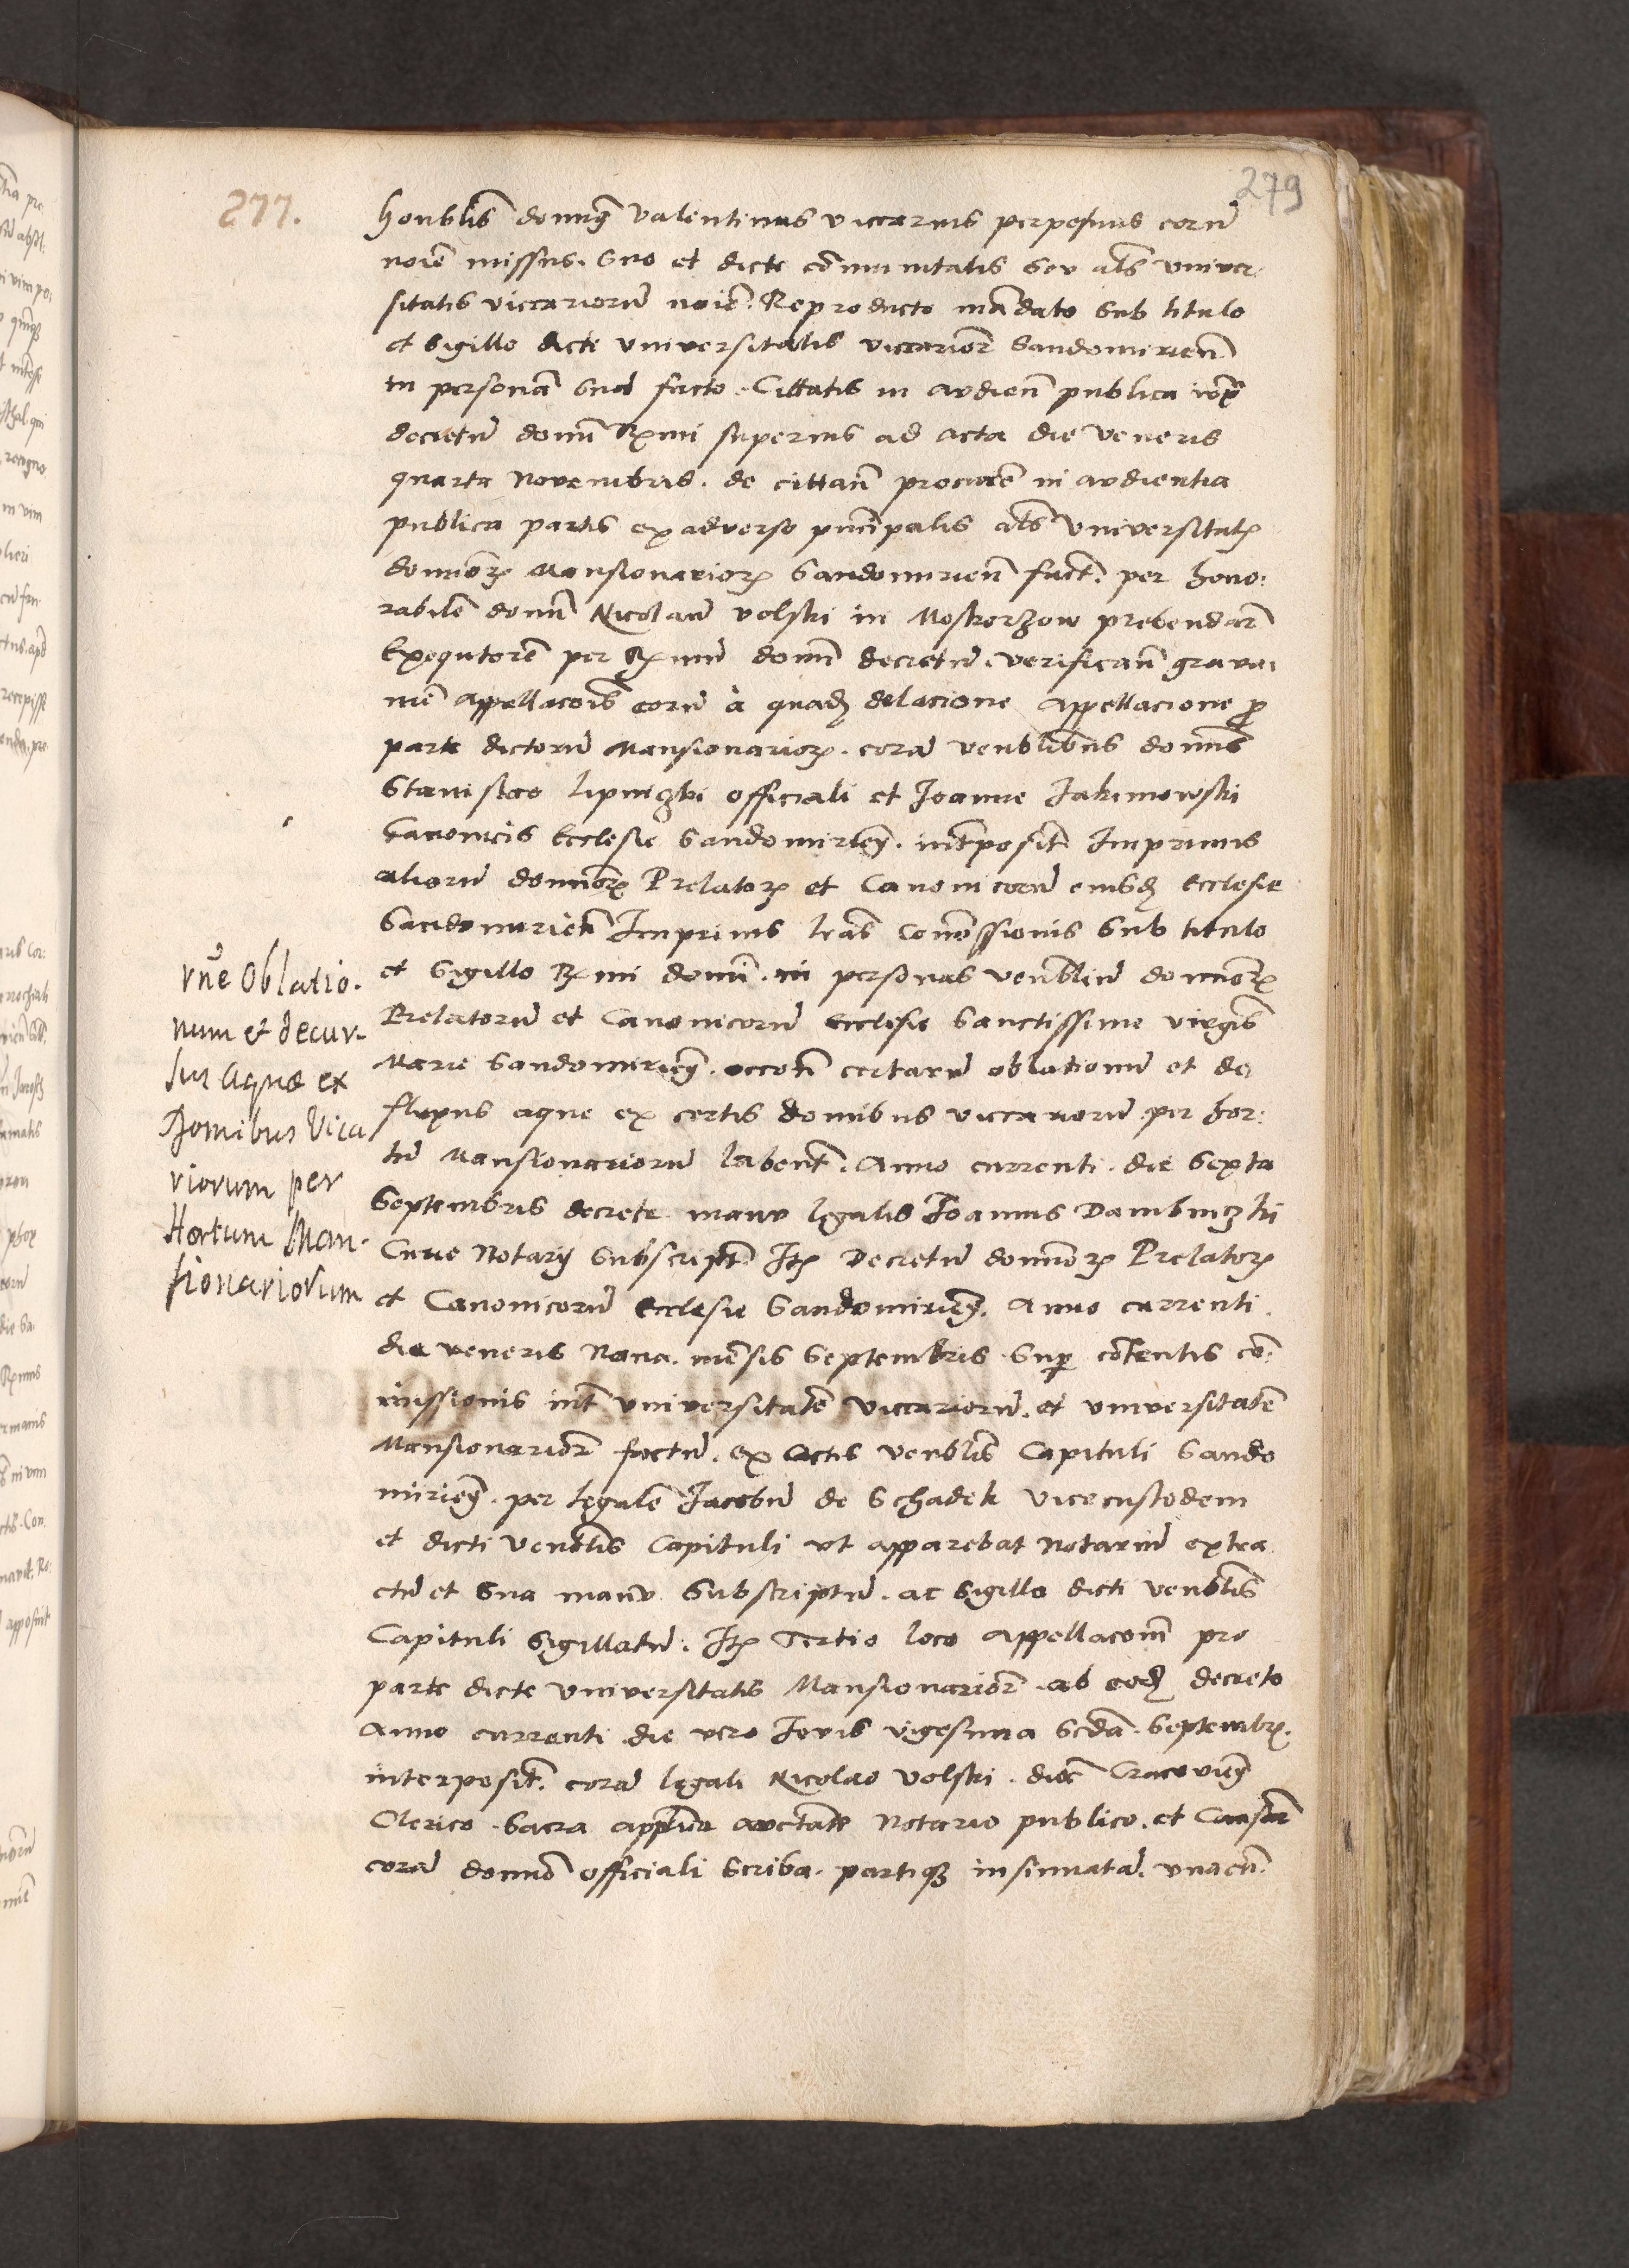 279
277.
honblis domin9 Valentinus viccarius perpetuus eorũ
noiẽ missus. Suo et dicte cõmunitatis seu als Univer-
sitatis viccariorũ noiẽ. Reproducto mãdato sub titulo
et sigillo dicte universitatis viccarior Sandomirien̄
in personã suã facto. Cittatis in audien̄ publica
decretũ domĩ Rmi superius ad acta die Veneris
quarta Novembris. de cittan̄ procurẽ in audientia
publica partis ex adverso principalis als Universitatꝭ
dominoꝝ Mansionarioꝝ Sandomirien̄ fact. per hono:
rabilẽ domĩ Nicolaũ Volski in Moskorzow prebendar̃
Exequtorẽ per Rmũ domĩ decretũ. verifican̄ grava-
mẽ appellacõis eorũ à quadꝫ delacione appellacione ꝑ
parte dictorũ Mansionarioꝝ. corã venblibus dominis
Stanislao Lipniczki officiali et Joanne Jakimowski
Canonicis Ecclesie Sandomirieñ. interposit Imprimis
aliorũ dominoꝝ Prelatoꝝ et Canonicorũ eiusdꝫ Ecclesie
Sandomirien̄ Imprimis lras Comissionis sub titulo
et sigillo Rmi domĩ. in personas venbliũ dominoꝝ
Prelatorũ et Canonicorũ Ecclesie Sanctissime virgĩs
Marie Sandomirieñ. occõn certarũ oblationũ et de
fluxus aque ex certis domibus viccariorũ per hor:
tũ Mansionariorũ labent. Anno currenti. die Sexta
Septembris decrete manu legalis Joannis Dambinczki
Curie Notarij subscript Itꝫ Decretũ dominoꝝ Prelatoꝝ
et Canonicorũ Ecclesie Sandomirieñ. Anno currenti.
die veneris Nona. mẽsis Septembris. Suꝑ cõtentis cõ-
missionis int̃ universitatẽ viccariorũ. et universitatẽ
Mansionarior̃ factũ. ex Actis venblis Capituli Sando
mirieñ. per legalẽ Jacobũ de Schadek vicecustodem
et dicti Venblis Capituli ut apparebat Notariũ extra
ctũ et sua manu subscriptũ. ac sigillo dicti venblis
Capituli sigillatũ. Itꝫ Tertio loco appellacom̃ pro
parte dicte Universitatis Mansionarior̃. ab eodꝫ decreto
Anno currenti die vero Jovis vigesima scdã. Septembrꝭ.
interposit. corã legali Nicolao Volski. dioc̃ Cracovieñ
Clerico. Sacra applica auctatẽ Notario publico. et
corã domĩo officiali scriba. partiqꝫ insinuatã. unacũ.
rñe Oblatio-
num et decur-
sus Aquæ ex
Domibus Vica
riorum per
Hortum Man-
sionariorum